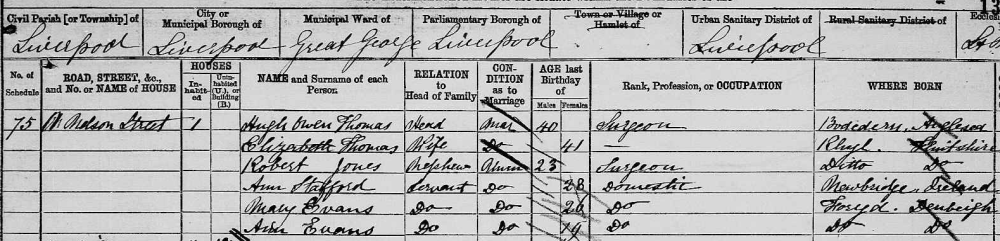 Civil Parish [or Township] of City or Municipal Borough of Municipal Ward of Parliamentary Borough of Town or Village or Hamlet of Urban Sanitary District of Rural Sanitary District of
Liverpool Liverpool Great George Liverpool Liverpool
No. of Schedule ROAD, STREET, &c., and No. or NAME of HOUSE HOUSES In-habit-ed Unin-habited (U.), or Building (B.) NAME and Surname of each Person RELATION to Head of Family CON-DITION as to Marriage AGE last Birthday of Males Females Rank, Profession, or OCCUPATION WHERE BORN
75 11 Nelson Street 1 Hugh Owen Thomas Head Mar 40 Surgeon Bodedern, Anglesea
Elizabeth Thomas Wife Do 41 — Rhyl Flintshire
Robert Jones Nephew Unm 23 Surgeon Ditto Do
Ann Stafford Servant Do 28 Domestic Newbridge, Ireland
Mary Evans Do Do 20 Do Foryd. Denbeigh
Ann Evans Do Do 19 Do Do Do